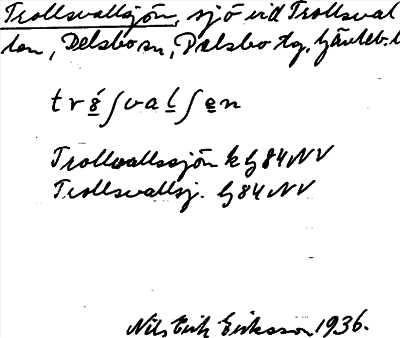 Trollsvallsjön, sjö vid Trollsval
len, Delsbo sn, Delsbo tg, Gävleb. l
trô̱ʃvaḻʃe̱n
Trollvallssjön k G84NV
Trollsvallsj. G84NV
Nils Erik Eriksson 1936.